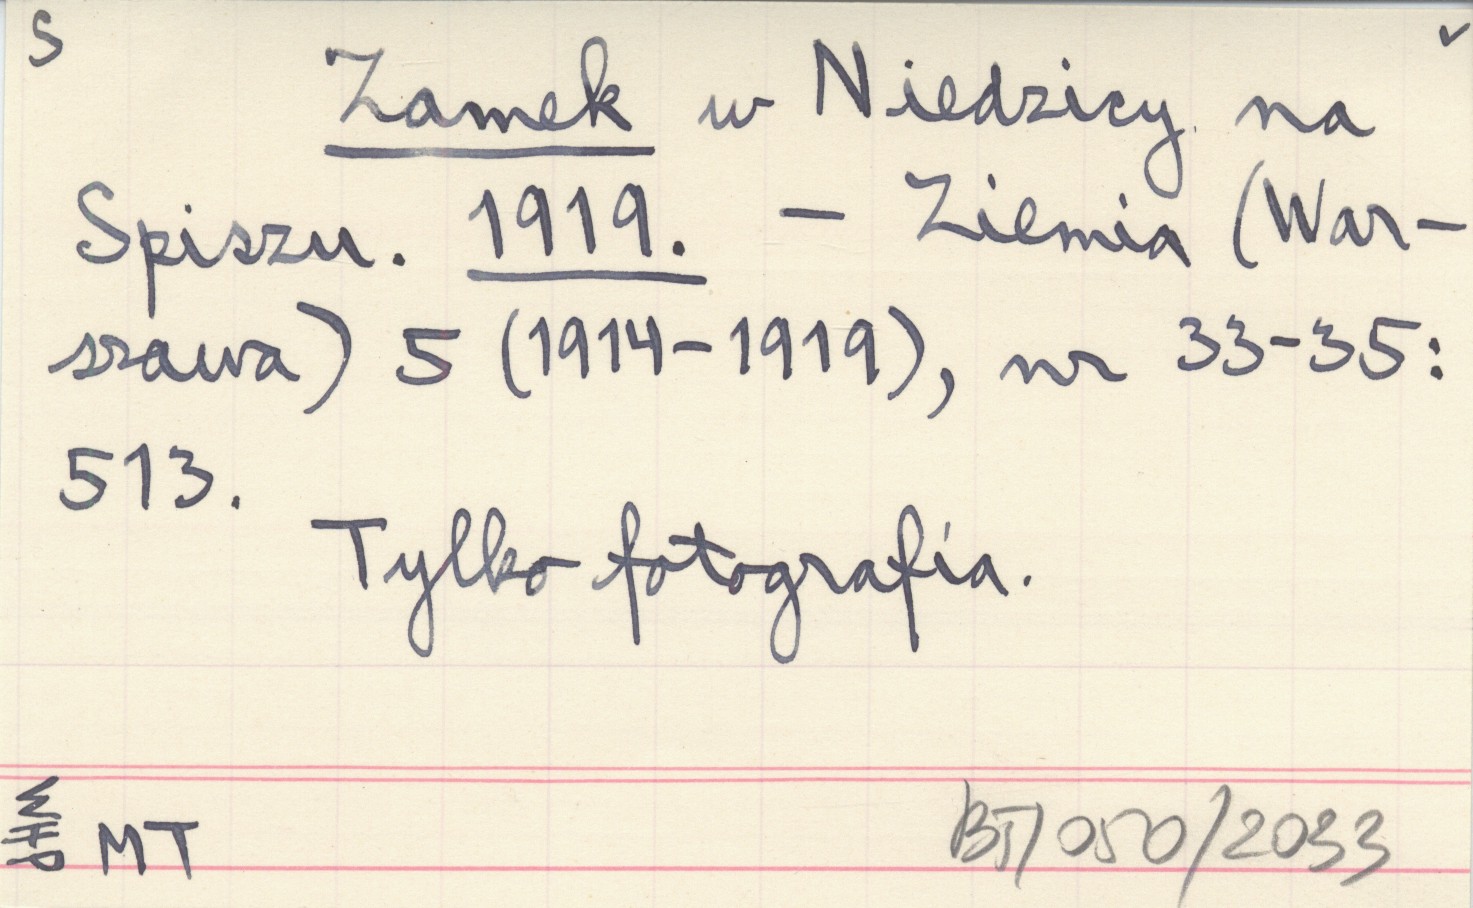 S ✓
Zamek w Niedzicy na
Spiszu. 1919. — Ziemia (War-
szawa) 5 (1914-1919), nr 33-35:
513.
Tylko fotografia.
WHP MT BJ/050/2033